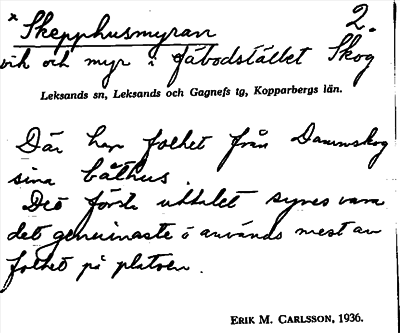 × Skepphusmyran 2.
vik och myr i fäbodstället Skog
Leksands sn, Leksands och Gagnefs tg, Kopparbergs län.
Där har folket från Dammskog
sina båthus.
Det första uttalet synes vara
det genuinaste o användes mest av
folket på platsen.
ERIK M. CARLSSON, 1936.